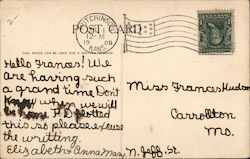 HUTCHINSON
12-M
1908
KANS.
POST CARD
THIS SPACE CAN BE USED FOR A WRITTEN MESSAGE
Hello Frances! We
are having such
a grand time Don't
know when we will
be home. Posted
this so please excuse
the writting.
Elisabeth Anna Mary
Miss Frances Hudson
Carrollton
Mo.
N. Jeff. St.